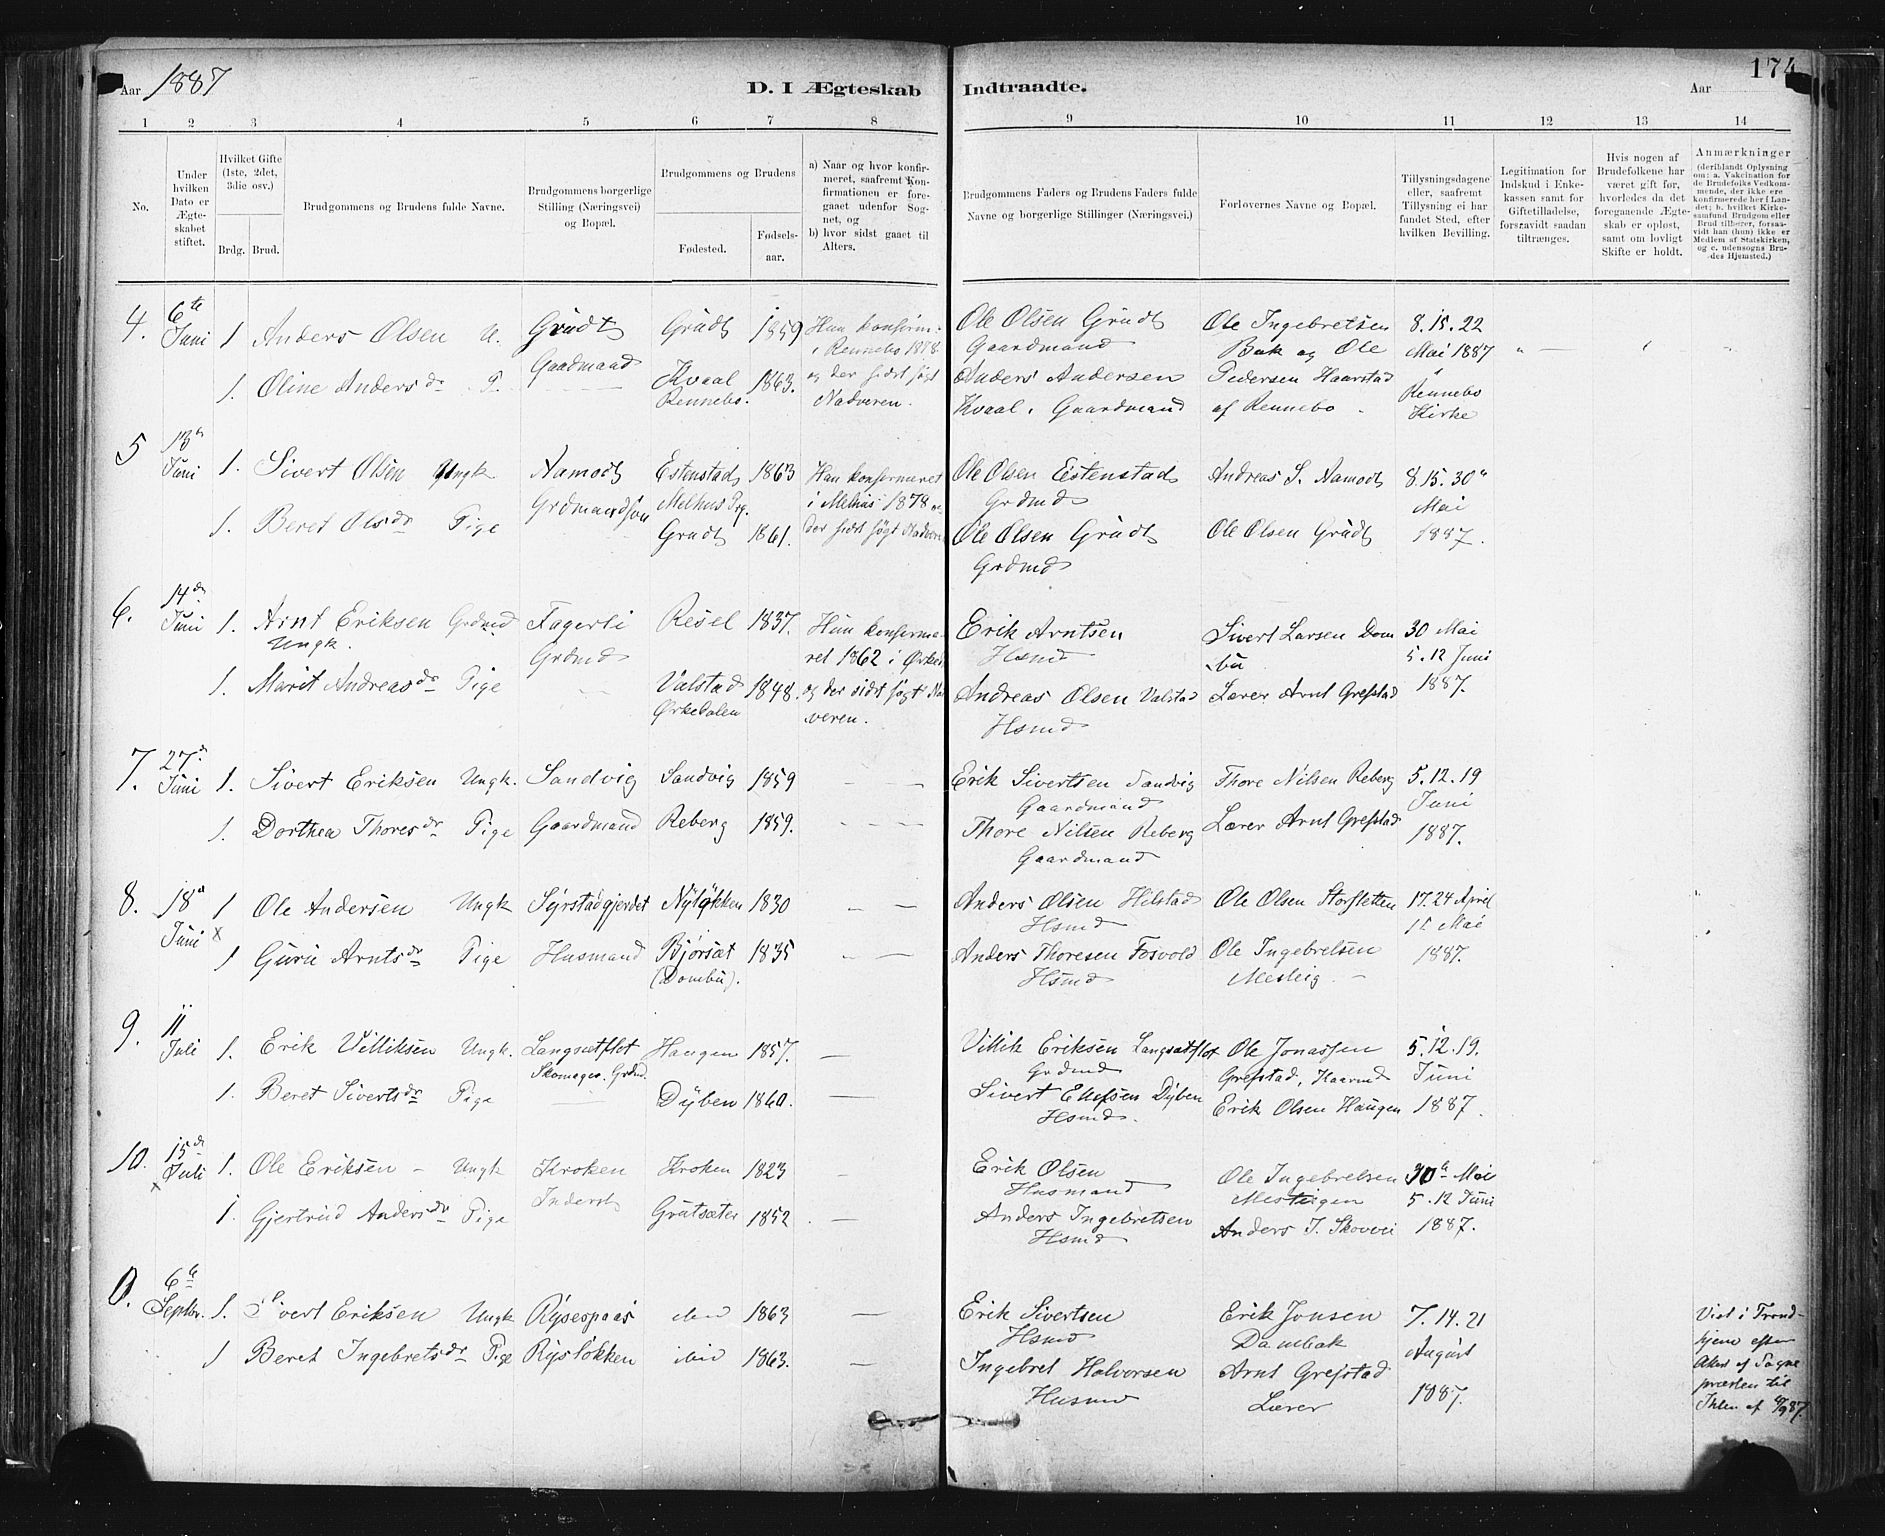 Aar 1887
D. I Ægteskab Indtraadte.
174
Aar
1 2 3 4 5 6 7 8 9 10 11 12 13 14
No.
Under hvilken Dato er Ægteskabet stiftet.
Hvilket Gifte (1ste, 2det, 3die osv.)
Brdg. Brud.
Brudgommens og Brudens fulde Navne.
Brudgommens borgerlige Stilling (Næringsvei) og Bopæl.
Brudgommens og Brudens
Fødested.
Fødsels-aar.
a) Naar og hvor konfirmeret, saafremt Konfirmationen er foregaaet udenfor Sognet, og
b) hvor sidst gaaet til Alters.
Brudgommens Faders og Brudens Faders fulde Navne og borgerlige Stillinger (Næringsvei.)
Forlovernes Navne og Bopæl.
Tillysningsdagene eller, saafremt Tillysning ei har fundet Sted, efter hvilken Bevilling.
Legitimation for Indskud i Enkekassen samt for Giftetilladelse, forsaavidt saadan tiltrænges.
Hvis nogen af Brudefolkene har været gift før, hvorledes da det foregaaende Ægteskab er opløst, samt om lovligt Skifte er holdt.
Anmærkninger
(deriblandt Oplysning om: a. Vakcination for de Brudefolks Vedkommende, der ikke ere konfirmerede her i Landet; b. hvilket Kirkesamfund Brudgom eller Brud tilhører, forsaavidt han (hun) ikke er Medlem af Statskirken, og c. udensogns Brudes Hjemsted.)
4. 6te Juni 1 Anders Olsen U. Grudt Gaardmand Grudt 1859
Hun konfirm. i Rennebo 1878 og der sidst søgt Nadveren.
Ole Olsen Grudt Gaardmand
Ole Ingebretsen Bak og Ole Pedersen Haarstad af Rennebo
8. 15. 22 Mai 1887 Rennebo Kirke
1. Oline Andersdr P. Kvaal Rennebo. 1863.
Anders Andersen Kvaal, Gaardmand
5 13de Juni 1. Sivert Olsen Ungk Aamodt Grdmandssøn Estenstad Melhus Prg. 1863
Han konfirmeret i Melhus 1878 og der sidst søgt Nadveren
Ole Olsen Estenstad Grdmd
Andreas S. Aamodt
8. 15. 30te Mai 1887.
1. Beret Olsdr Pige Grudt 1861.
Ole Olsen Grudt Grdmd
Ole Olsen Grudt
6. 14de Juni 1. Arnt Eriksen Grdmd Ungk. Fagerli Grdmd Resel 1837.
Hun konfirmeret 1862 i Ørkedal og der sidst søgt Nadveren.
Erik Arntsen Hsmd
Sivert Larsen Dombu
30 Mai 5. 12 Juni 1887.
1. Marit Andreasdr Pige Valstad Ørkedalen 1848.
Andreas Olsen Valstad Hsmd
Lærer Arnt Grefstad
7. 27de Juni 1. Sivert Eriksen Ungk. Sandvig Gaardmand Sandvig 1859
Erik Sivertsen Sandvig Gaardmand
Thore Nilsen Reberg
5. 12. 19 Juni 1887.
1. Dorthea Thoresdr Pige Reberg 1859.
Thore Nilsen Reberg Gaardmand
Lærer Arnt Grefstad
8. 18de Juni x 1 Ole Andersen Ungk Syrstadgjerdet Husmand Nyløkken 1830
Anders Olsen Hilstad Hsmd
Ole Olsen Storsletten
17. 24 April 15 Mai 1887.
1 Guru Arntsdr Pige Bjørsæt (Dombu). 1835
Anders Thoresen Fosvold Hsmd
Ole Ingebretsen Mesteig
9. 11 Juli 1. Erik Villiksen Ungk. Langsætflot Skomager. Grdmd. Haugen 1857.
Villik Eriksen Langsætflot Grdmd
Ole Jonassen Grefstad, Kaarmd
5. 12. 19. Juni 1887.
1. Beret Sivertsdr Pige Dyben 1860.
Sivert Ellefsen Dyben Hsmd.
Erik Olsen Haugen
10. 15de Juli x 1. Ole Eriksen Ungk Kroken Inderst Kroken 1823
Erik Olsen Husmand
Ole Ingebretsen Mesteigen
30te Mai 5. 12 Juni 1887.
1. Gjertrud Andersdr Pige Grutsæter 1852.
Anders Ingebretsen Hsmd
Anders J. Skovei
0. 6te Septbr. 1. Sivert Eriksen Ungk Rysespaas ibid 1863
Erik Sivertsen Hsmd
Erik Jonsen Dambak
7. 14. 21 August 1887.
Viet i Trondhjem efter Attest af Sognepræsten til Ihlen af 6/9 87.
1 Beret Ingebretsdr Pige Rysløkken ibid 1863.
Ingebret Halvorsen Husmd
Arnt Grefstad Lærer